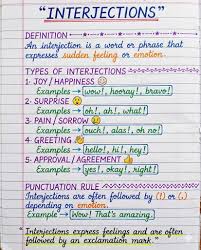 "INTERJECTIONS"
DEFINITION
An interjection is a word or phrase that
expresses sudden feeling or emotion.
TYPES OF INTERJECTIONS
1- JOY / HAPPINESS 😊
Examples → wow!, hooray!, bravo!
2- SURPRISE 😮
Examples → oh!, ah!, what!
3- PAIN / SORROW 😢
Examples → ouch!, alas!, oh no!
4- GREETING 👋
Examples → hello!, hi!, hey!
5- APPROVAL / AGREEMENT 👍
Examples → yes!, okay!, right!
PUNCTUATION RULE
Interjections are often followed by (!) or (,)
depending on emotion.
Example → Wow! That's amazing.
"Interjections express feelings and are often
followed by an exclamation mark."